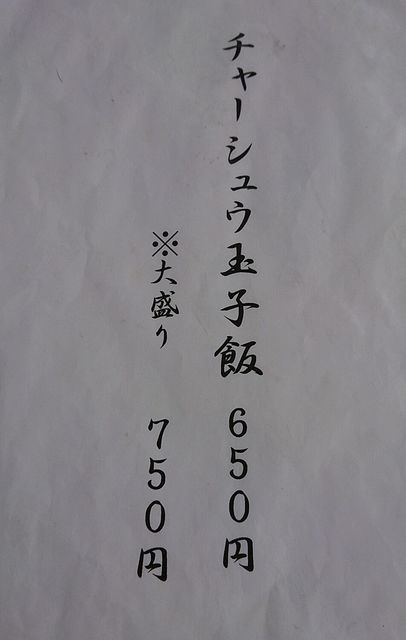 チャーシュウ玉子飯 650円
※大盛り 750円